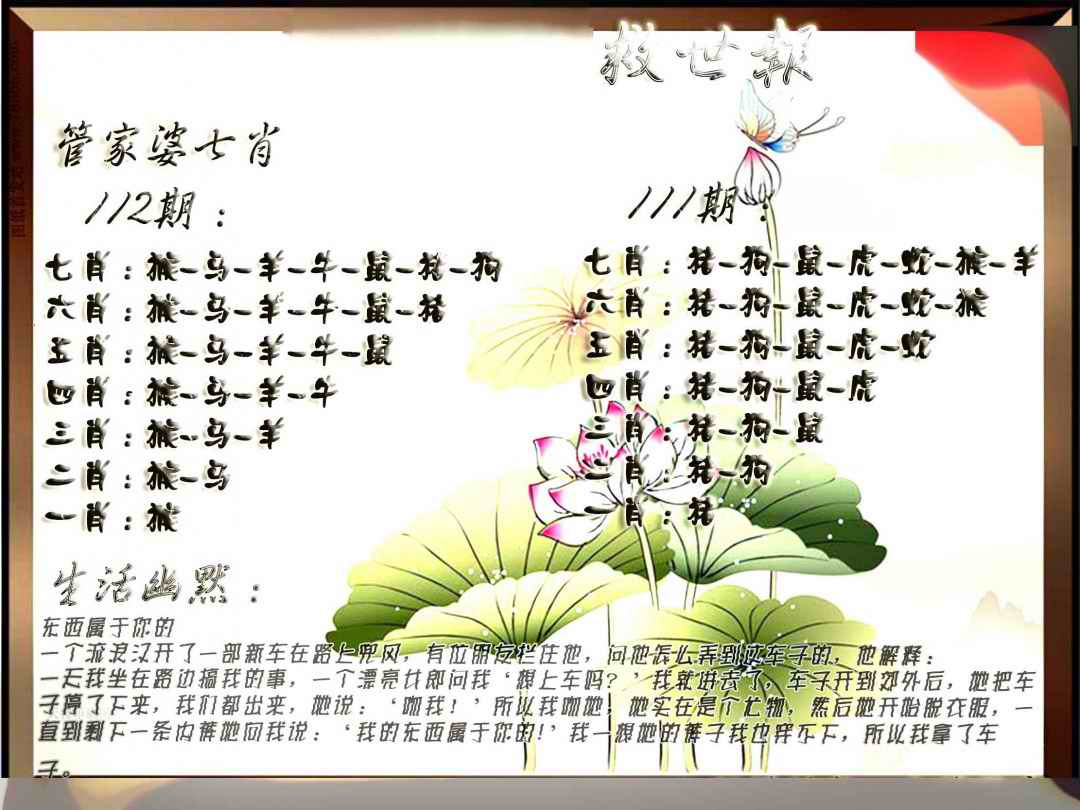 救世報
管家婆七肖
112期：
七肖：猴-马-羊-牛-鼠-猪-狗
六肖：猴-马-羊-牛-鼠-猪
五肖：猴-马-羊-牛-鼠
四肖：猴-马-羊-牛
三肖：猴-马-羊
二肖：猴-马
一肖：猴
111期：
七肖：猪-狗-鼠-虎-蛇-猴-羊
六肖：猪-狗-鼠-虎-蛇-猴
五肖：猪-狗-鼠-虎-蛇
四肖：猪-狗-鼠-虎
三肖：猪-狗-鼠
二肖：猪-狗
一肖：猪
生活幽默：
东西属于你的
一个流浪汉开了一部新车在路上兜风，有位朋友拦住他，问他怎么弄到这车子的，他解释：
一天我坐在路边搞我的事，一个漂亮女郎问我‘想上车吗？’我就进去了，车子开到郊外后，她把车
子停了下来，我们都出来，她说：‘吻我！’所以我吻她，她实在是个尤物，然后她开始脱衣服，一
直到剩下一条内裤她向我说：‘我的东西属于你的!’我一想她的裤子我也穿不下，所以我拿了车
子。